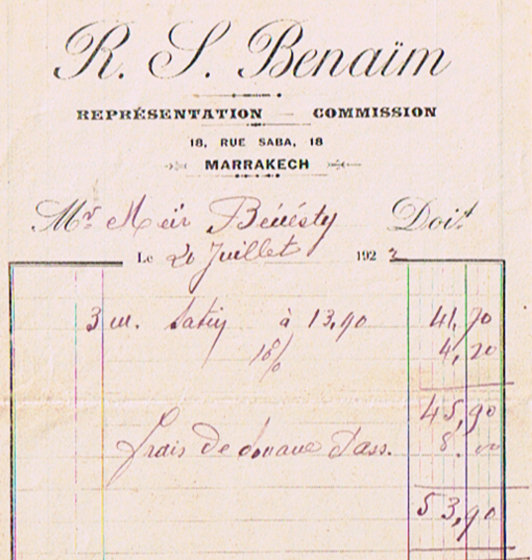 R. S. Benaïm
REPRÉSENTATION — COMMISSION
18, RUE SABA, 18
MARRAKECH
Mr Meïr Bénésty Doit
Le 20 Juillet 1922
3 m. Satin à 13,90 41,70
10% 4,20
45,90
frais de douane Pass. 8.00
53,90